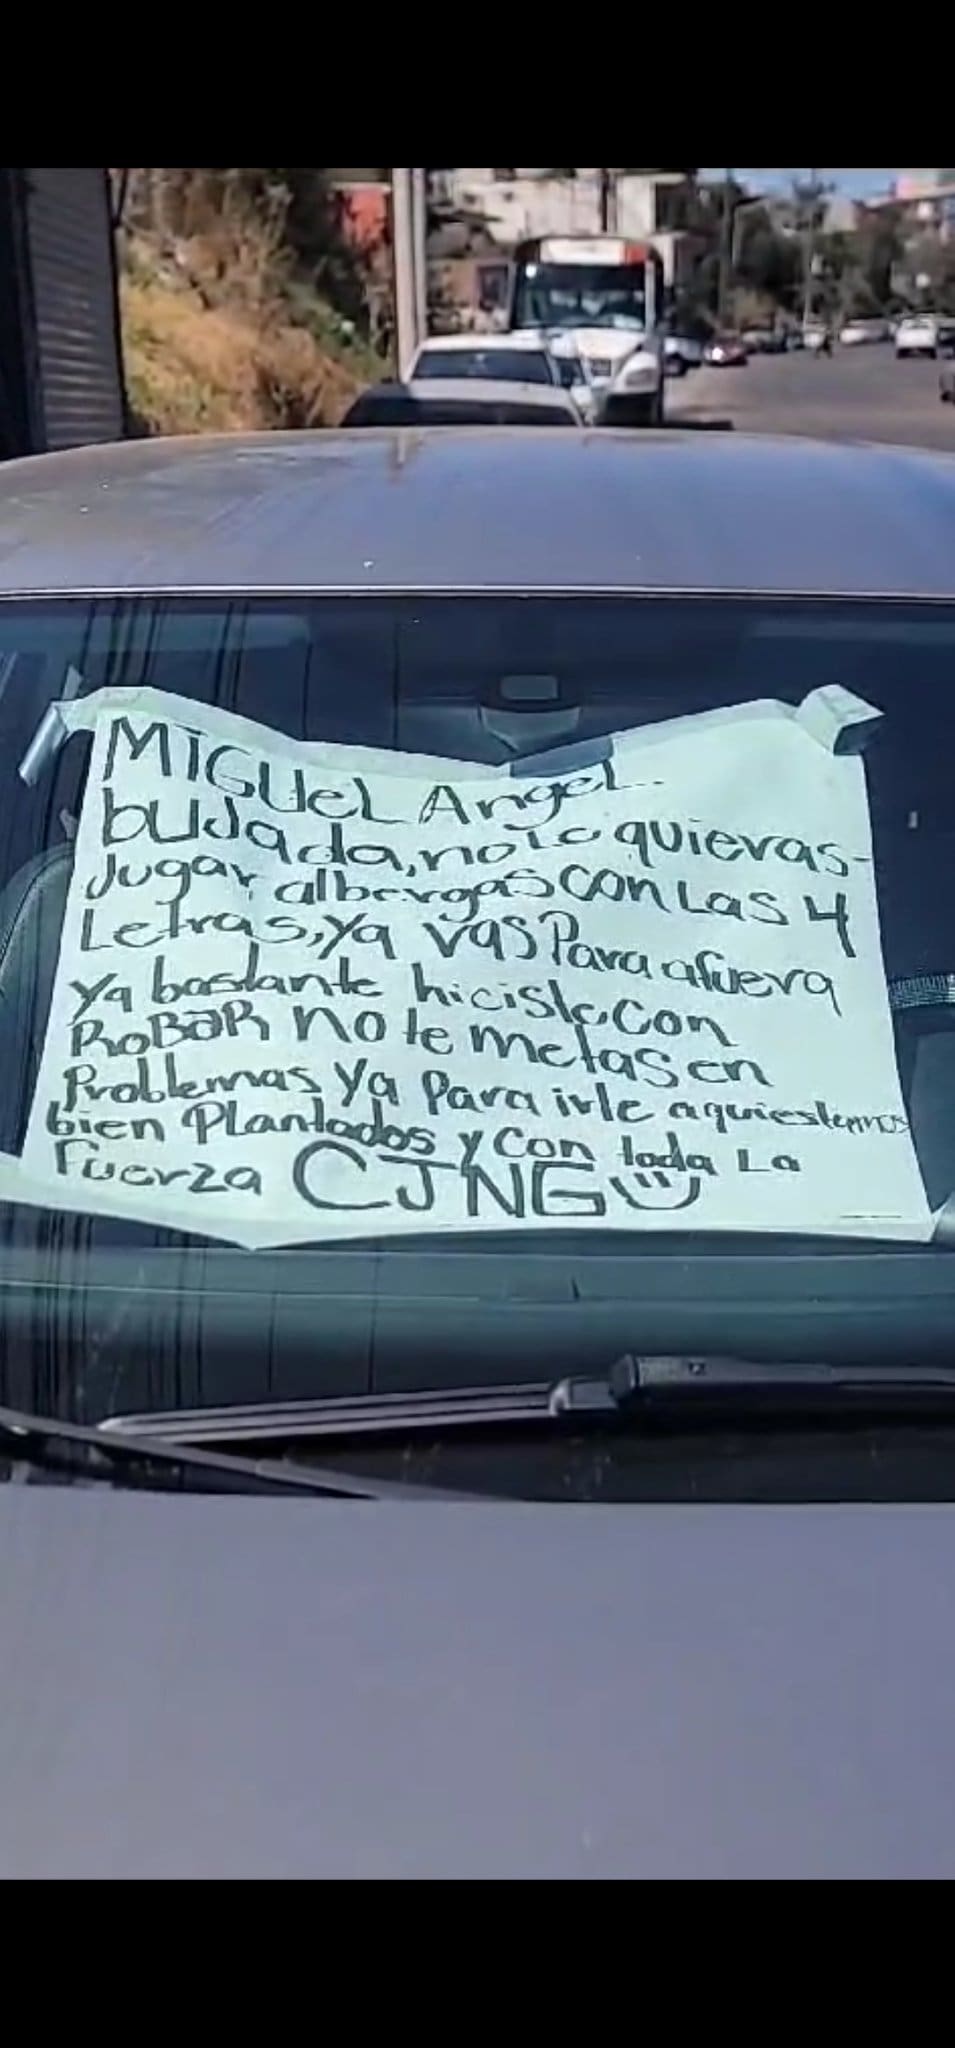 MIGUEL Angel.
bUJada, no te quieras-
Jugar albergas con Las 4
Letras, ya vas Para afuera
ya bastante hiciste, con
RoBaR no te metas en
Problemas ya Para irte aquiestemos
bien Plantados y con toda La
fuerza CJNG